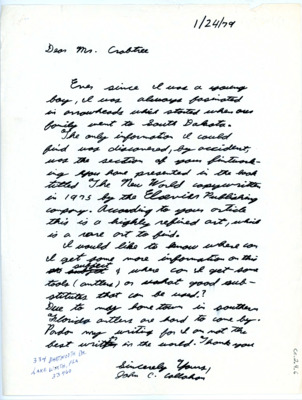 1/24/79
Dear Mr. Crabtree
Ever since I was a young
boy, I was always fasinated
in arrowheads which started when our
family went to South Dakota.
The only information I could
find was discovered, by accident,
was the section of your flintwork-
ing you have presented in the book
titled "The New World copywritten
in 1975 by the Elsevier Publishing
company. According to your article
this is a highly refined art, which
is a rare art to find.
I would like to know where can
I get some more information on this
subject & where can I get some
tools (antlers) or what good sub-
stitutes that can be used?
Due to my home town in southern
Florida antlers are hard to come by.
Pardon my writing for I'm not the
best writer in the world. Thank you
Sincerely Yours,
John C. Callahan
Lake Worth, Fla